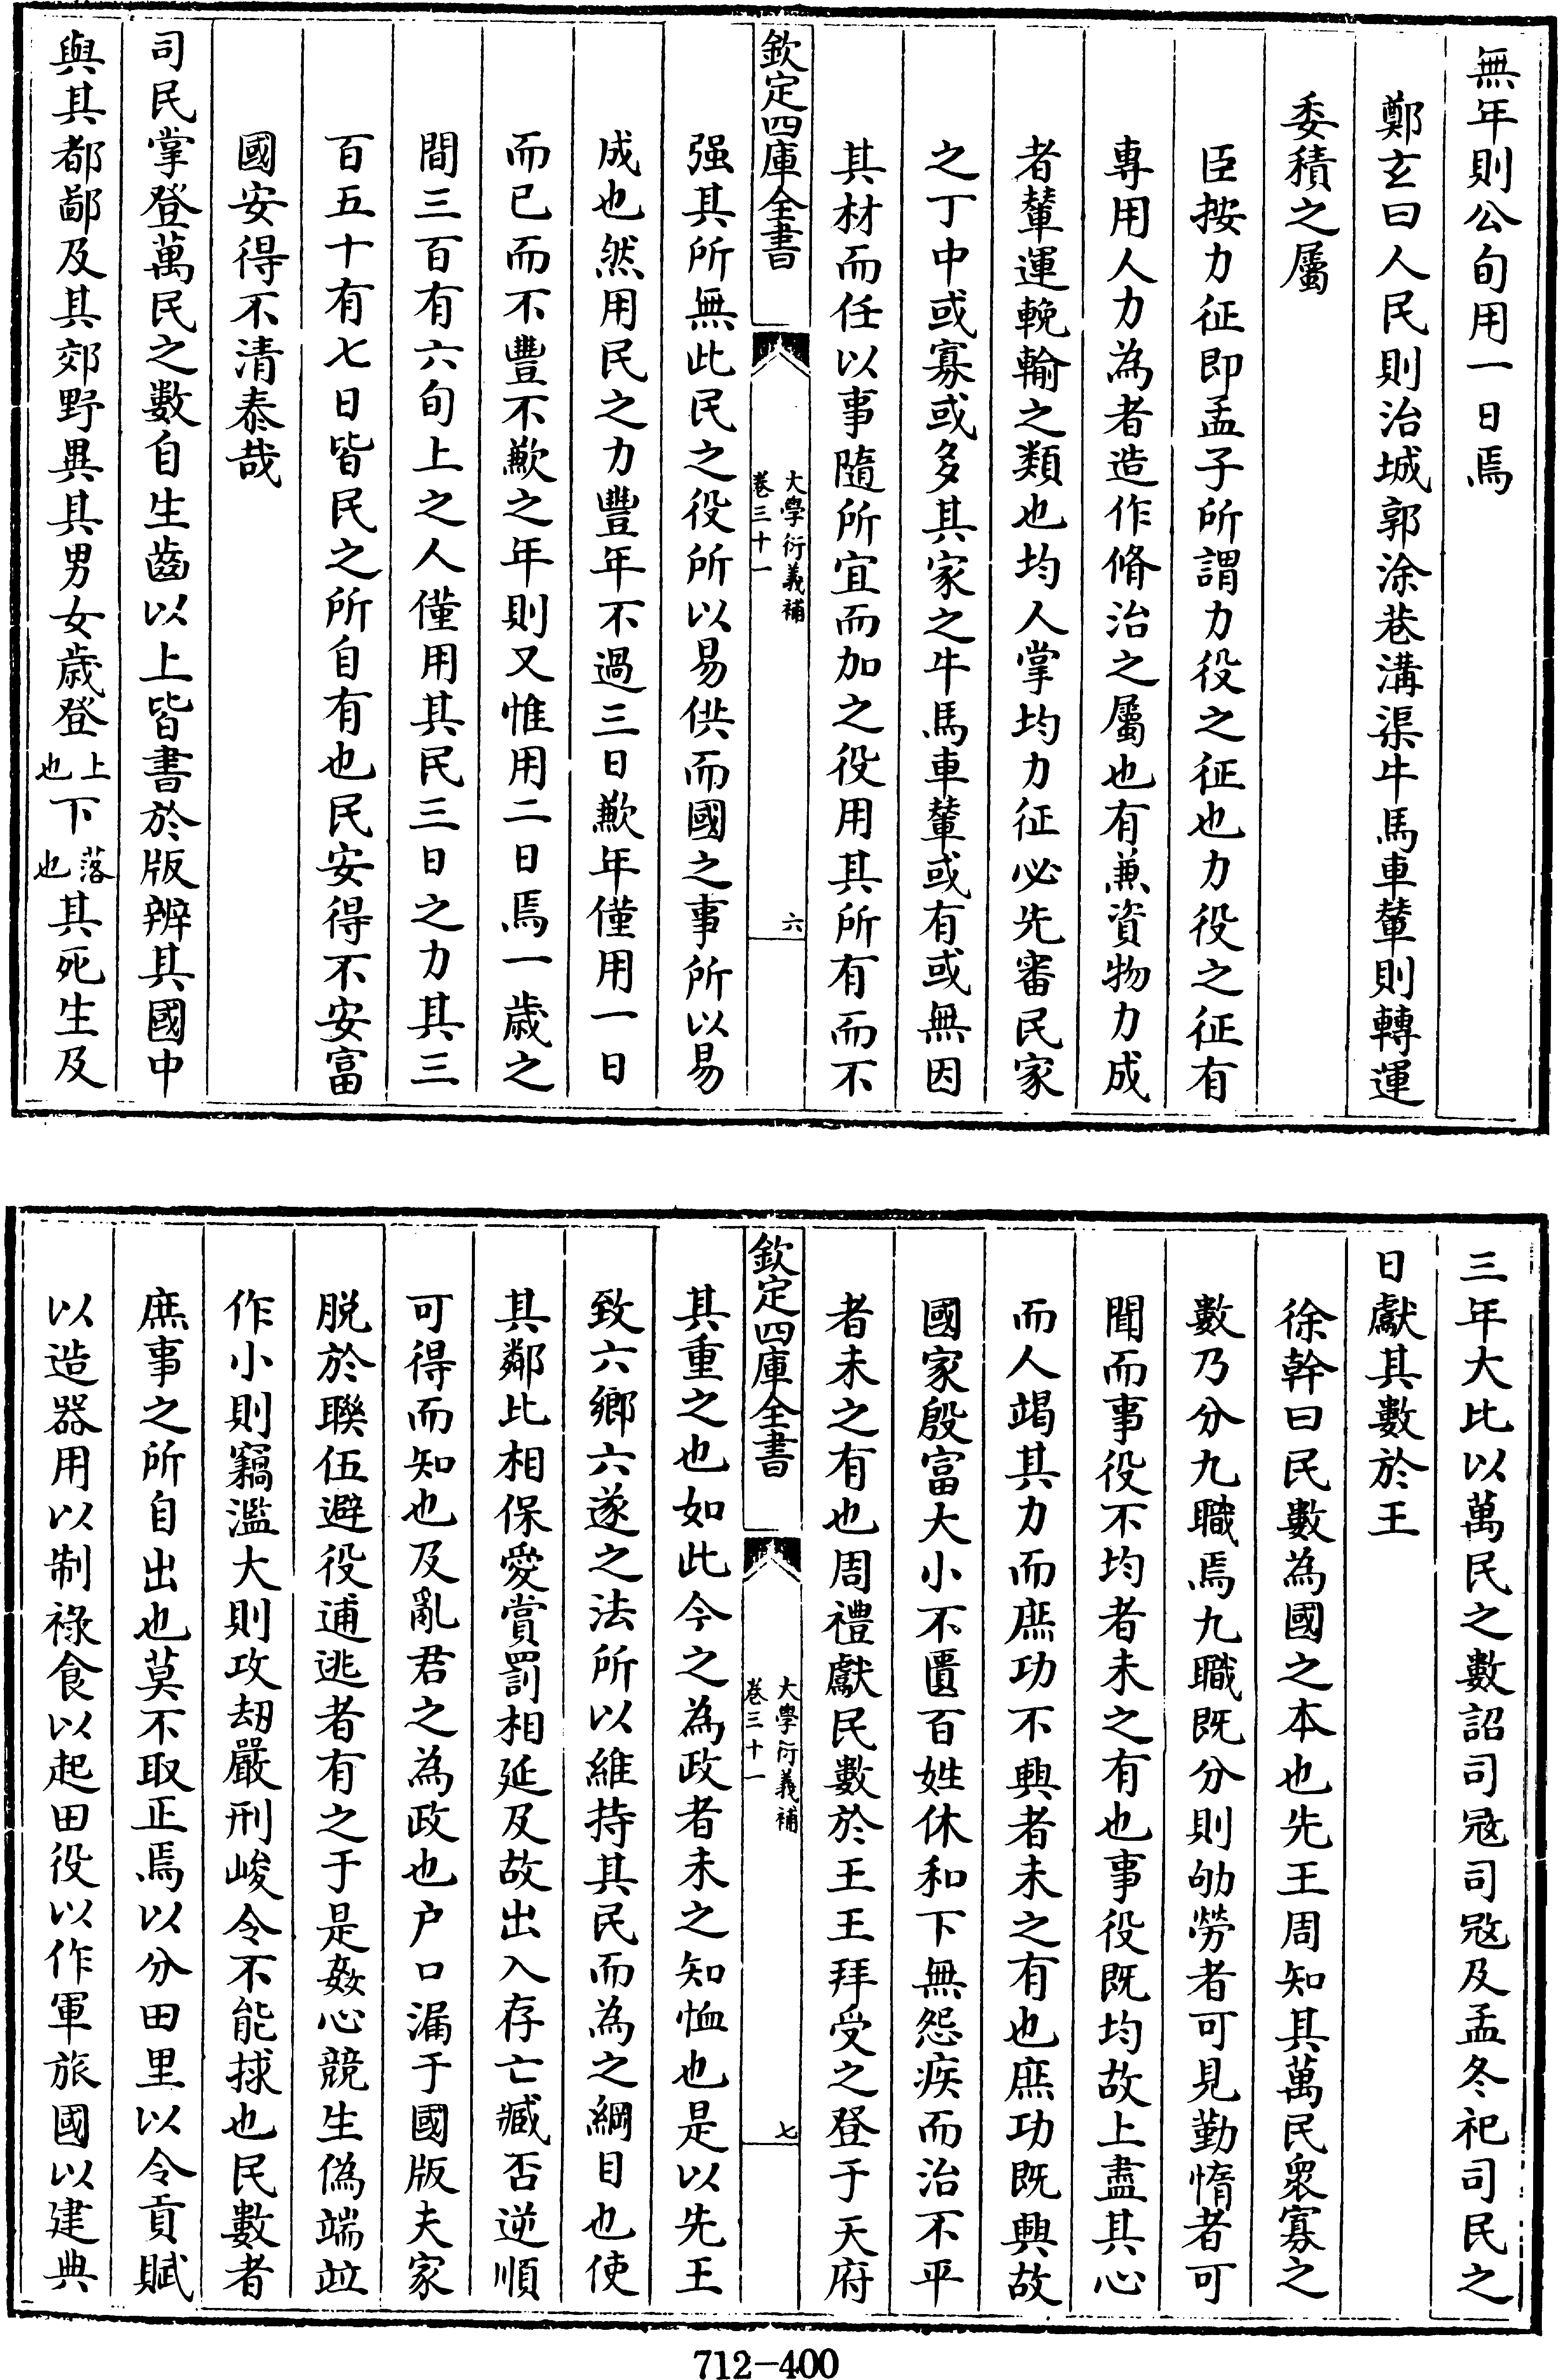 無年則公旬用一日焉
鄭玄曰人民則治城郭涂巷溝渠牛馬車輦則轉運
委積之屬
臣按力征即孟子所謂力役之征也力役之征有
專用人力為者造作脩治之屬也有兼資物力成
者輦運輓輸之類也均人掌均力征必先審民家
之丁中或寡或多其家之牛馬車輦或有或無因
其材而任以事隨所宜而加之役用其所有而不
欽定四庫全書
大學衍義補
卷三十一
六
强其所無此民之役所以易供而國之事所以易
成也然用民之力豐年不過三日歉年僅用一日
而已而不豐不歉之年則又惟用二日焉一歲之
間三百有六旬上之人僅用其民三日之力其三
百五十有七日皆民之所自有也民安得不安富
國安得不清泰哉
司民掌登萬民之數自生齒以上皆書於版辨其國中
與其都鄙及其郊野異其男女歲登上也下落也其死生及
三年大比以萬民之數詔司寇司寇及孟冬祀司民之
日獻其數於王
徐幹曰民數為國之本也先王周知其萬民衆寡之
數乃分九職焉九職既分則劬勞者可見勤惰者可
聞而事役不均者未之有也事役既均故上盡其心
而人竭其力而庶功不興者未之有也庶功既興故
國家殷富大小不匱百姓休和下無怨疾而治不平
者未之有也周禮獻民數於王王拜受之登于天府
欽定四庫全書
大學衍義補
卷三十一
七
其重之也如此今之為政者未之知恤也是以先王
致六鄉六遂之法所以維持其民而為之綱目也使
其鄰比相保愛賞罰相延及故出入存亡臧否逆順
可得而知也及亂君之為政也户口漏于國版夫家
脱於聨伍避役逋逃者有之于是姦心競生偽端竝
作小則竊濫大則攻刼嚴刑峻令不能捄也民數者
庶事之所自出也莫不取正焉以分田里以令貢賦
以造器用以制祿食以起田役以作軍旅國以建典
712-400